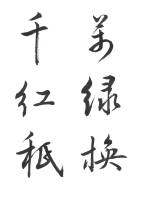 萬绿换
千红秖